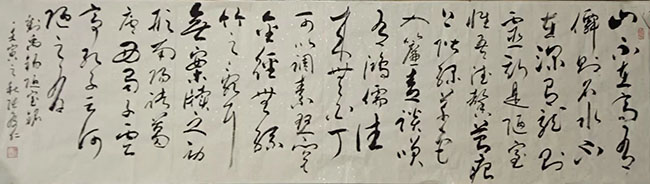 山不在高有
僊则名水不
在深有龙则
灵斯是陋室
惟吾德馨苔痕
上阶绿草色
入簾青谈笑
有鸿儒往
来无白丁
可以调素琴阅
金经无丝
竹之乱耳
无案牍之劳
形南阳诸葛
庐西蜀子云
亭孔子云何
陋之有
刘禹锡陋室铭
壬寅之秋